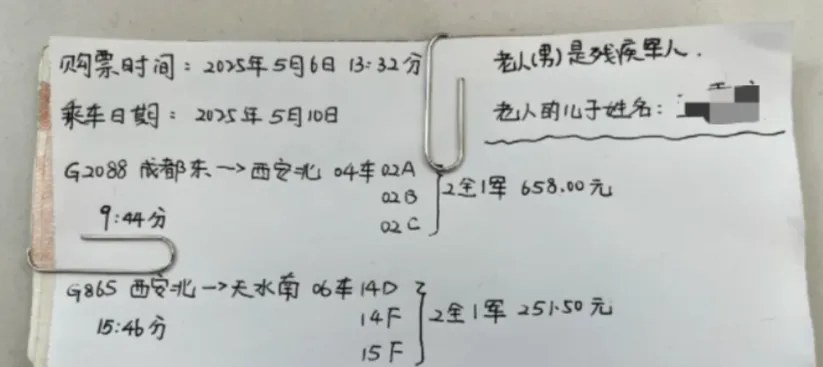 购票时间：2025年5月6日 13:32分
老人(男)是残疾军人.
乘车日期：2025年5月10日
老人的儿子姓名：
G2088 成都东→西安北 04车02A
02B
02C
2全1军 658.00元
9:44分
G865 西安北→天水南 06车14D
14F
15F
2全1军 251.50元
15:46分